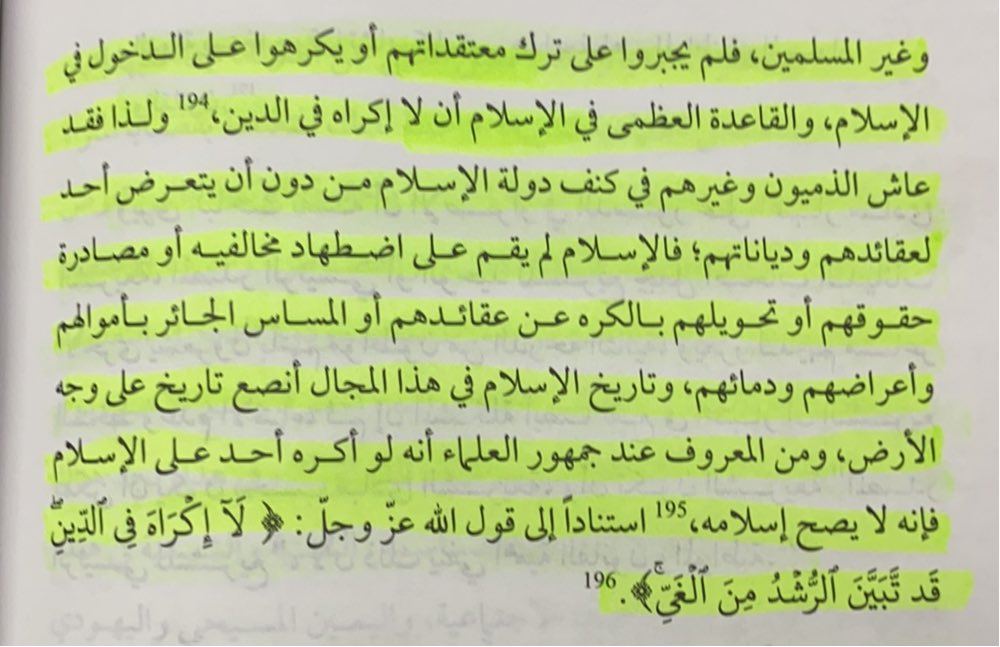 وغير المسلمين، فلم يجبروا على ترك معتقداتهم أو يكرهوا على الدخول في
الإسلام، والقاعدة العظمى في الإسلام أن لا إكراه في الدين،194 ولذا فقد
عاش الذميون وغيرهم في كنف دولة الإسلام من دون أن يتعرض أحد
لعقائدهم ودياناتهم؛ فالإسلام لم يقم على اضطهاد مخالفيه أو مصادرة
حقوقهم أو تحويلهم بالكره عن عقائدهم أو المساس الجائر بأموالهم
وأعراضهم ودمائهم، وتاريخ الإسلام في هذا المجال أنصع تاريخ على وجه
الأرض، ومن المعروف عند جمهور العلماء أنه لو أكره أحد على الإسلام
فإنه لا يصح إسلامه،195 استناداً إلى قول الله عزّ وجلّ: ﴿ لَآ إِكْرَاهَ فِي ٱلدِّينِۖ
قَد تَّبَيَّنَ ٱلرُّشْدُ مِنَ ٱلْغَيِّۚ ﴾.196